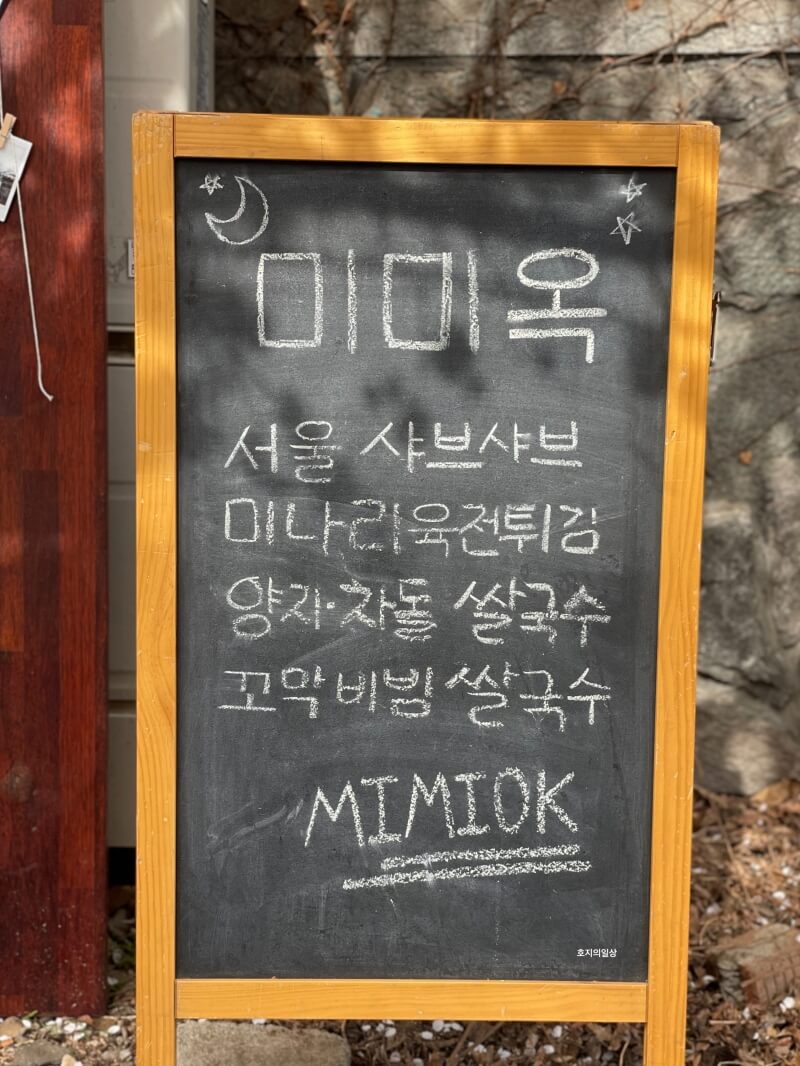 미미옥
서울 샤브샤브
미나리육전튀김
양지·차돌 쌀국수
꼬막비빔 쌀국수
MIMIOK
호지의일상